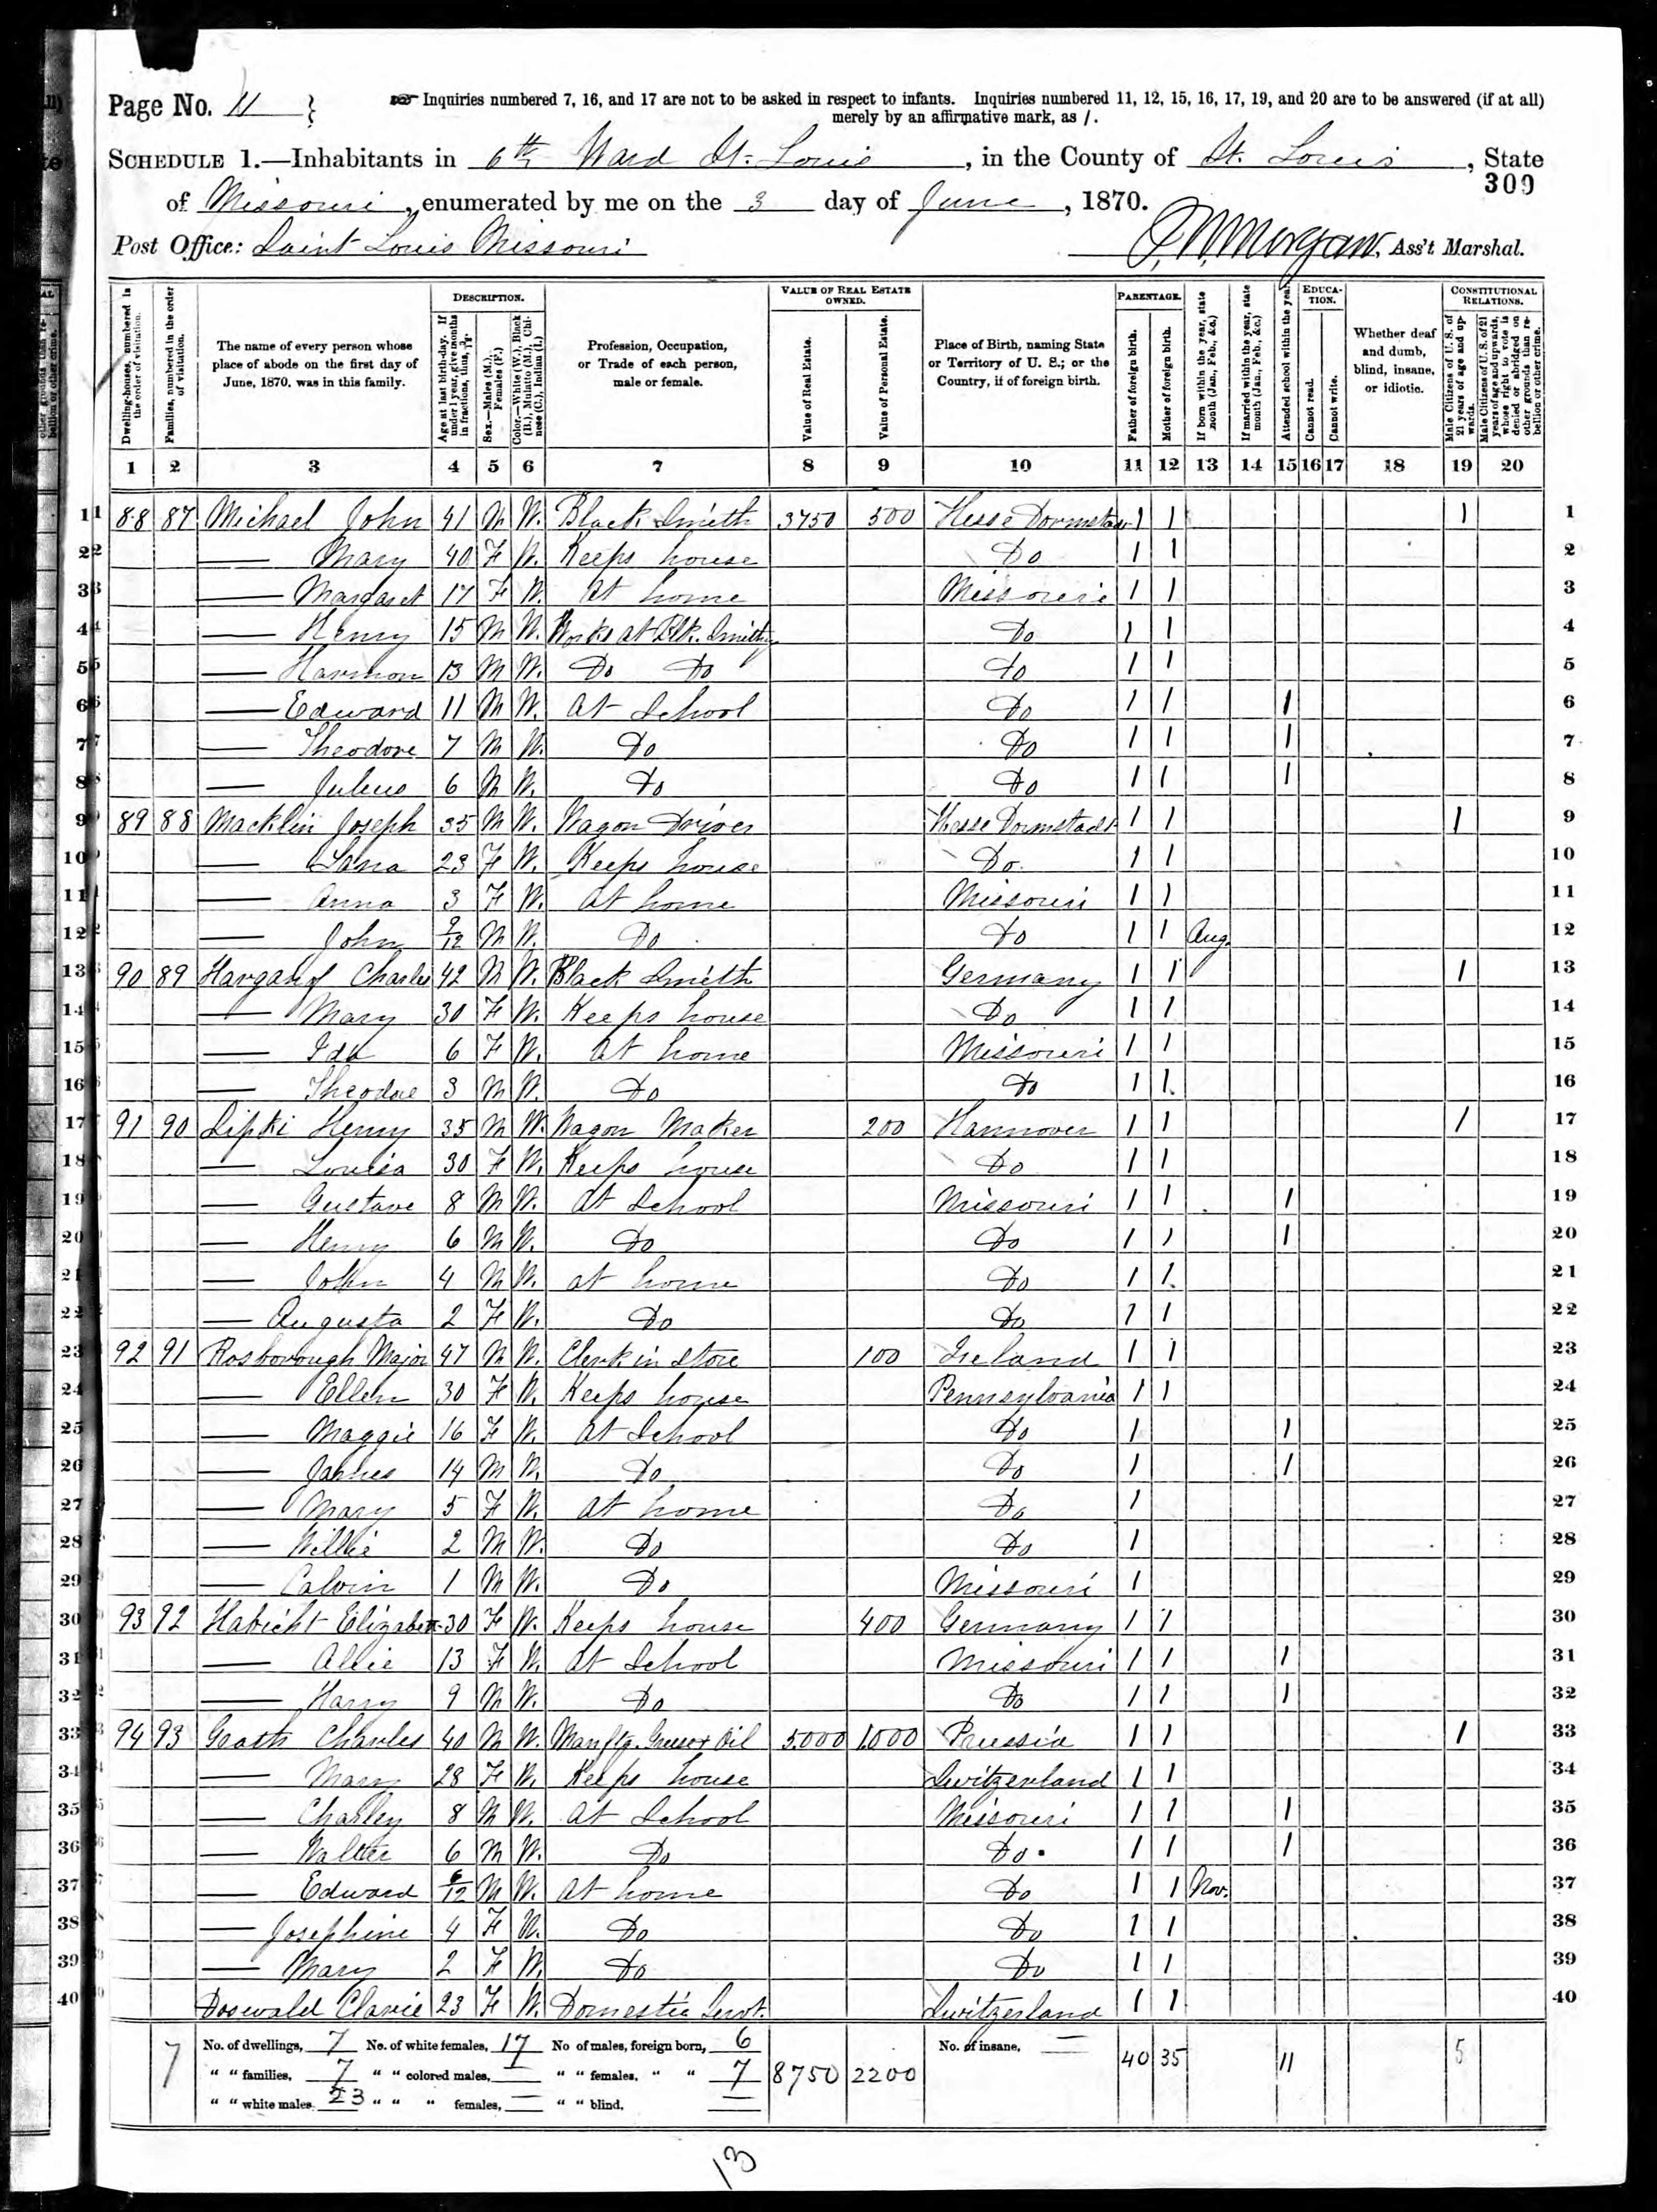 Page No. 11
Inquiries numbered 7, 16, and 17 are not to be asked in respect to infants. Inquiries numbered 11, 12, 15, 16, 17, 19, and 20 are to be answered (if at all)
merely by an affirmative mark, as /.
SCHEDULE 1.—Inhabitants in 6th Ward St. Louis, in the County of St. Louis, State
309
of Missouri, enumerated by me on the 3 day of June, 1870.
Post Office: Saint Louis Missouri Morgan, Ass't Marshal.
Dwelling-houses, numbered in the order of visitation.
Families, numbered in the order of visitation.
The name of every person whose place of abode on the first day of June, 1870, was in this family.
DESCRIPTION.
Age at last birth-day. If under 1 year, give months in fractions, thus, 3/12.
Sex.—Males (M.), Females (F.)
Color.—White (W.), Black (B.), Mulatto (M.), Chinese (C.), Indian (I.)
Profession, Occupation, or Trade of each person, male or female.
VALUE OF REAL ESTATE OWNED.
Value of Real Estate.
Value of Personal Estate.
Place of Birth, naming State or Territory of U. S.; or the Country, if of foreign birth.
PARENTAGE.
Father of foreign birth.
Mother of foreign birth.
If born within the year, state month (Jan., Feb., &c.)
If married within the year, state month (Jan., Feb., &c.)
EDUCATION.
Attended school within the year.
Cannot read.
Cannot write.
Whether deaf and dumb, blind, insane, or idiotic.
CONSTITUTIONAL RELATIONS.
Male Citizens of U. S. of 21 years of age and upwards.
Male Citizens of U. S. of 21 years of age and upwards, whose right to vote is denied or abridged on other grounds than rebellion or other crime.
1 2 3 4 5 6 7 8 9 10 11 12 13 14 15 16 17 18 19 20
1 88 87 Michael John 41 M W. Black Smith 3750 500 Hesse Dormstadt 1 1 1 1
2 — Mary 40 F W. Keeps house Do 1 1 2
3 — Margaret 17 F W. At home Missouri 1 1 3
4 — Henry 15 M W. Works at Blk. Smithg Do 1 1 4
5 — Harmon 13 M W. Do Do Do 1 1 5
6 — Edward 11 M W. At School Do 1 1 1 6
7 — Theodore 7 M W. Do Do 1 1 1 7
8 — Julius 6 M W. Do Do 1 1 1 8
9 89 88 Macklin Joseph 35 M W. Wagon Driver Hesse Dormstadt 1 1 1 9
10 — Lana 23 F W. Keeps house Do 1 1 10
11 — Anna 3 F W. At home Missouri 1 1 11
12 — John 9/12 M W. Do Do 1 1 Aug. 12
13 90 89 Charles 42 M W. Black Smith Germany 1 1 1 13
14 — Mary 30 F W. Keeps house Do 1 1 14
15 — Ida 6 F W. At home Missouri 1 1 15
16 — Theodore 3 M W. Do Do 1 1 16
17 91 90 Lipki Henry 35 M W. Wagon Maker 200 Hannover 1 1 1 17
18 — Louisa 30 F W. Keeps house Do 1 1 18
19 — Gustave 8 M W. At School Missouri 1 1 1 19
20 — Henry 6 M W. Do Do 1 1 1 20
21 — John 4 M W. at home Do 1 1 21
22 — Augusta 2 F W. Do Do 1 1 22
23 92 91 Rosborough Major 47 M W. Clerk in Store 100 Ireland 1 1 23
24 — Ellen 30 F W. Keeps house Pennsylvania 1 1 24
25 — Maggie 16 F W. At School Do 1 1 25
26 — James 14 M W. Do Do 1 1 26
27 — Mary 5 F W. At home Do 1 27
28 — Willie 2 M W. Do Do 1 28
29 — Calvin 1 M W. Do Missouri 1 29
30 93 92 Habicht Elizabeth 30 F W. Keeps house 400 Germany 1 1 30
31 — Allie 13 F W. At School Missouri 1 1 1 31
32 — Harry 9 M W. Do Do 1 1 1 32
33 94 93 Charles 40 M W. Manftg. Grease + Oil 5.000 1.000 Prussia 1 1 1 33
34 — Mary 28 F W. Keeps house Switzerland 1 1 34
35 — Charley 8 M W. At School Missouri 1 1 1 35
36 — Walter 6 M W. Do Do 1 1 1 36
37 — Edward 6/12 M W. At home Do 1 1 Nov. 37
38 — Josephine 4 F W. Do Do 1 1 38
39 — Mary 2 F W. Do Do 1 1 39
40 Doswald Clarie 23 F W. Domestic Servt. Switzerland 1 1 40
7 No. of dwellings, 7 No. of white females, 17 No of males, foreign born, 6 8750 2200 No. of insane, — 40 35 11 5
" " families, 7 " " colored males, — " " females, " " 7
" " white males 23 " " " females, — " " blind, —
13